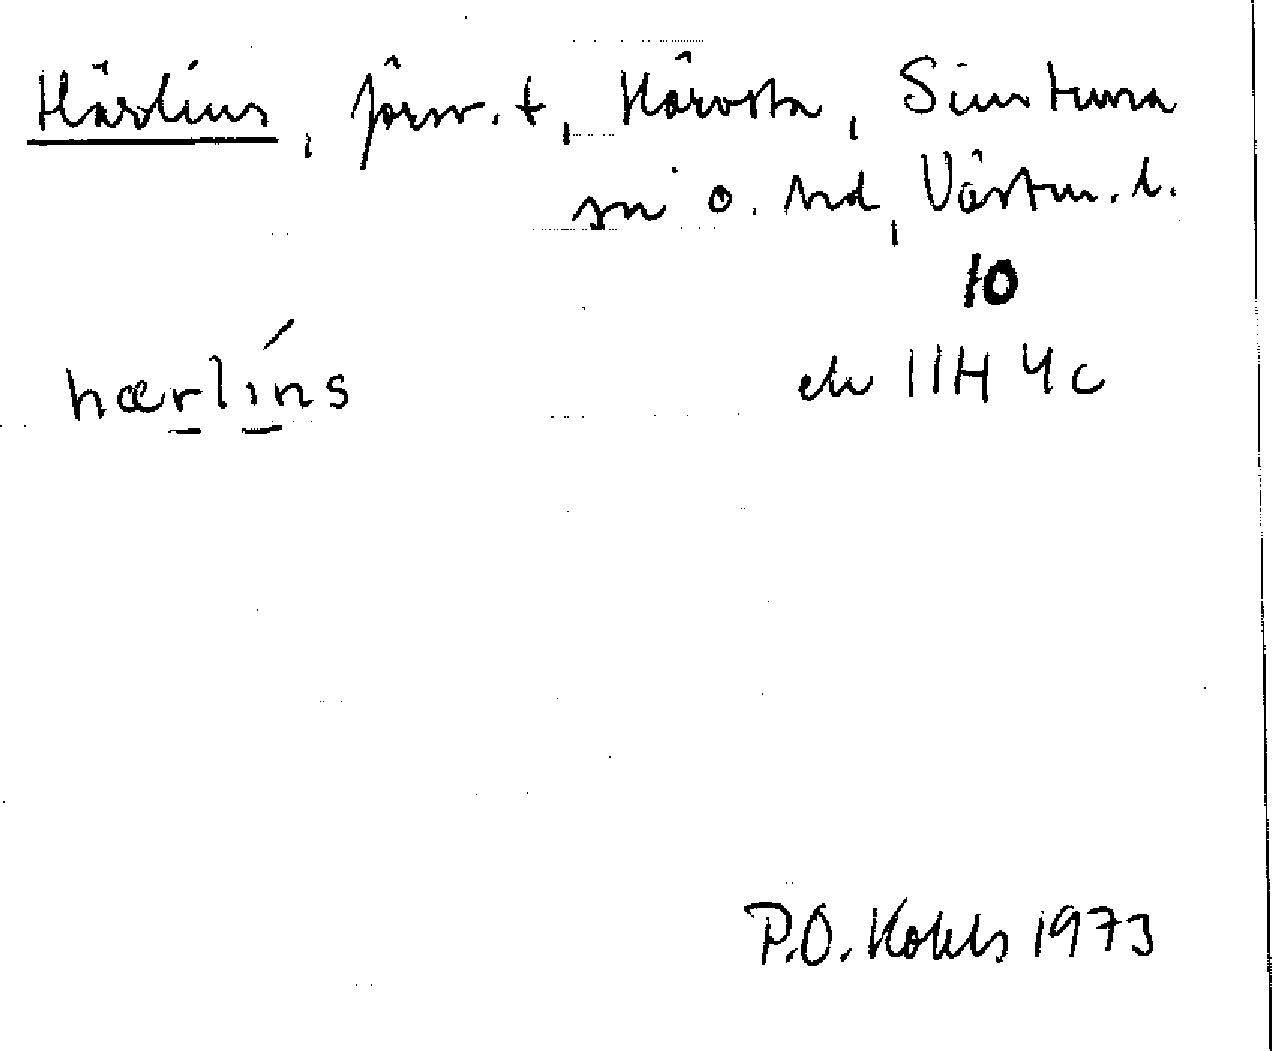 Härlins, försv. t, Härvsta, Simtuna
sn o. hd, Västm. l.
10
hærlíns ek 11H 4c
P.O. Kohls 1973